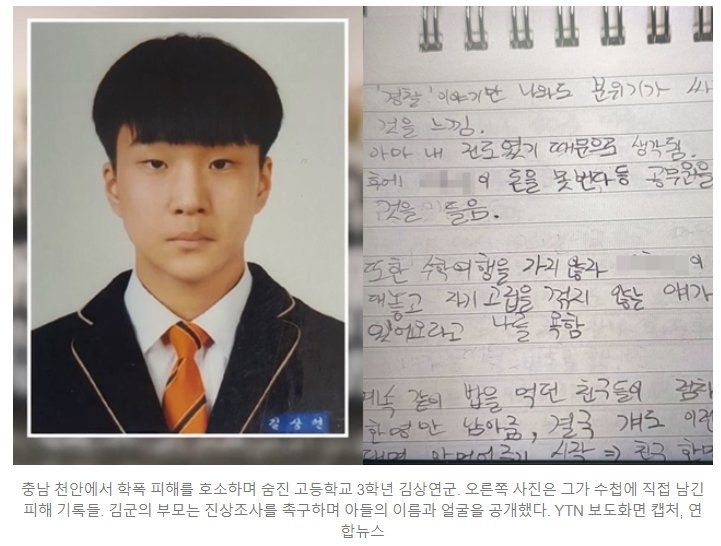 김상연
'경찰' 이야기만 나와도 분위기가 싸
것을 느낌.
아마 내 진로였기 때문으로 생각됨.
후에 의 돈을 못 번다 등 공무원을
것을 들음.
또한 수학여행을 가지 않자 의
대놓고 자기 고집을 꺾지 않는 얘가
있어요라고 나를 욕함
계속 같이 밥을 먹던 친구들이
한명만 남아줌, 결국 걔도 이런
시작 ⇒ 친구 한명
충남 천안에서 학폭 피해를 호소하며 숨진 고등학교 3학년 김상연군. 오른쪽 사진은 그가 수첩에 직접 남긴
피해 기록들. 김군의 부모는 진상조사를 촉구하며 아들의 이름과 얼굴을 공개했다. YTN 보도화면 캡처, 연
합뉴스